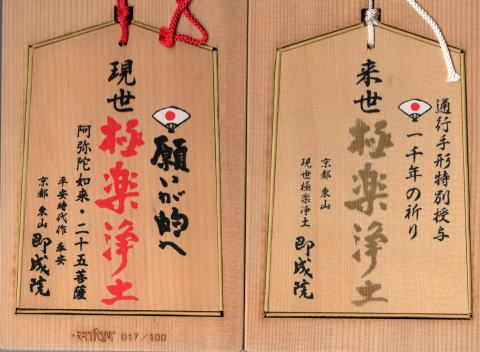 現世
極楽浄土
願いが的へ
阿弥陀如来・二十五菩薩
平安時代作 奉安
京都 東山 即成院
017/100
来世
極楽浄土
通行手形特別授与
一千年の祈り
京都 東山
現世極楽浄土 即成院